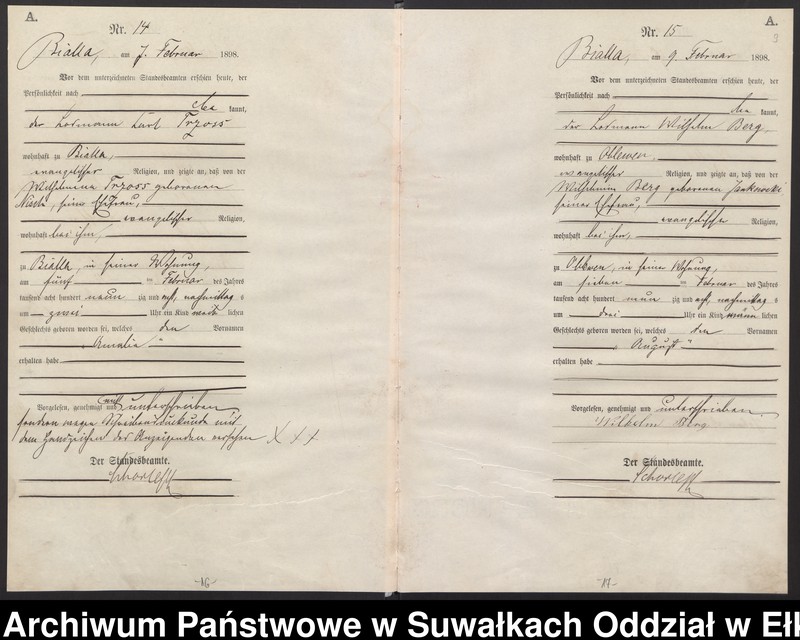 A.
Nr. 14
Bialla, am 7. Februar 1898.
Vor dem unterzeichneten Standesbeamten erschien heute, der
Persönlichkeit nach
kannt,
der Losmann Karl Trzoss
wohnhaft zu Bialla,
evangelischer Religion, und zeigte an, daß von der
Wilhelmine Trzoss geborenen
seine Ehefrau,
evangelischer Religion,
wohnhaft bei ihm,
zu Bialla, in seiner Wohnung,
am fünf ten Februar des Jahres
tausend acht hundert neun zig und acht, nachmittag s
um zwei Uhr ein Kind weib lichen
Geschlechts geboren worden sei, welches den Vornamen
Amalie
erhalten habe
Vorgelesen, genehmigt und nicht unterschrieben
sondern wegen Schreibensunkunde mit
dem Handzeichen des Anzeigenden versehen X X X
Der Standesbeamte.
-16-
A.
3
Nr. 15
Bialla, am 9. Februar 1898.
Vor dem unterzeichneten Standesbeamten erschien heute, der
Persönlichkeit nach
kannt,
der Losmann Wilhelm Berg,
wohnhaft zu Oblewen,
evangelischer Religion, und zeigte an, daß von der
Wilhelmine Berg geborenen Jankowski
seiner Ehefrau,
evangelischer Religion,
wohnhaft bei ihm,
zu Oblewen, in seiner Wohnung,
am sieben ten Februar des Jahres
tausend acht hundert neun zig und acht, nachmittag s
um drei Uhr ein Kind männ lichen
Geschlechts geboren worden sei, welches den Vornamen
August
erhalten habe
Vorgelesen, genehmigt und unterschrieben.
Wilhelm Berg
Der Standesbeamte.
-17-
Archiwum Państwowe w Suwałkach Oddział w Eł